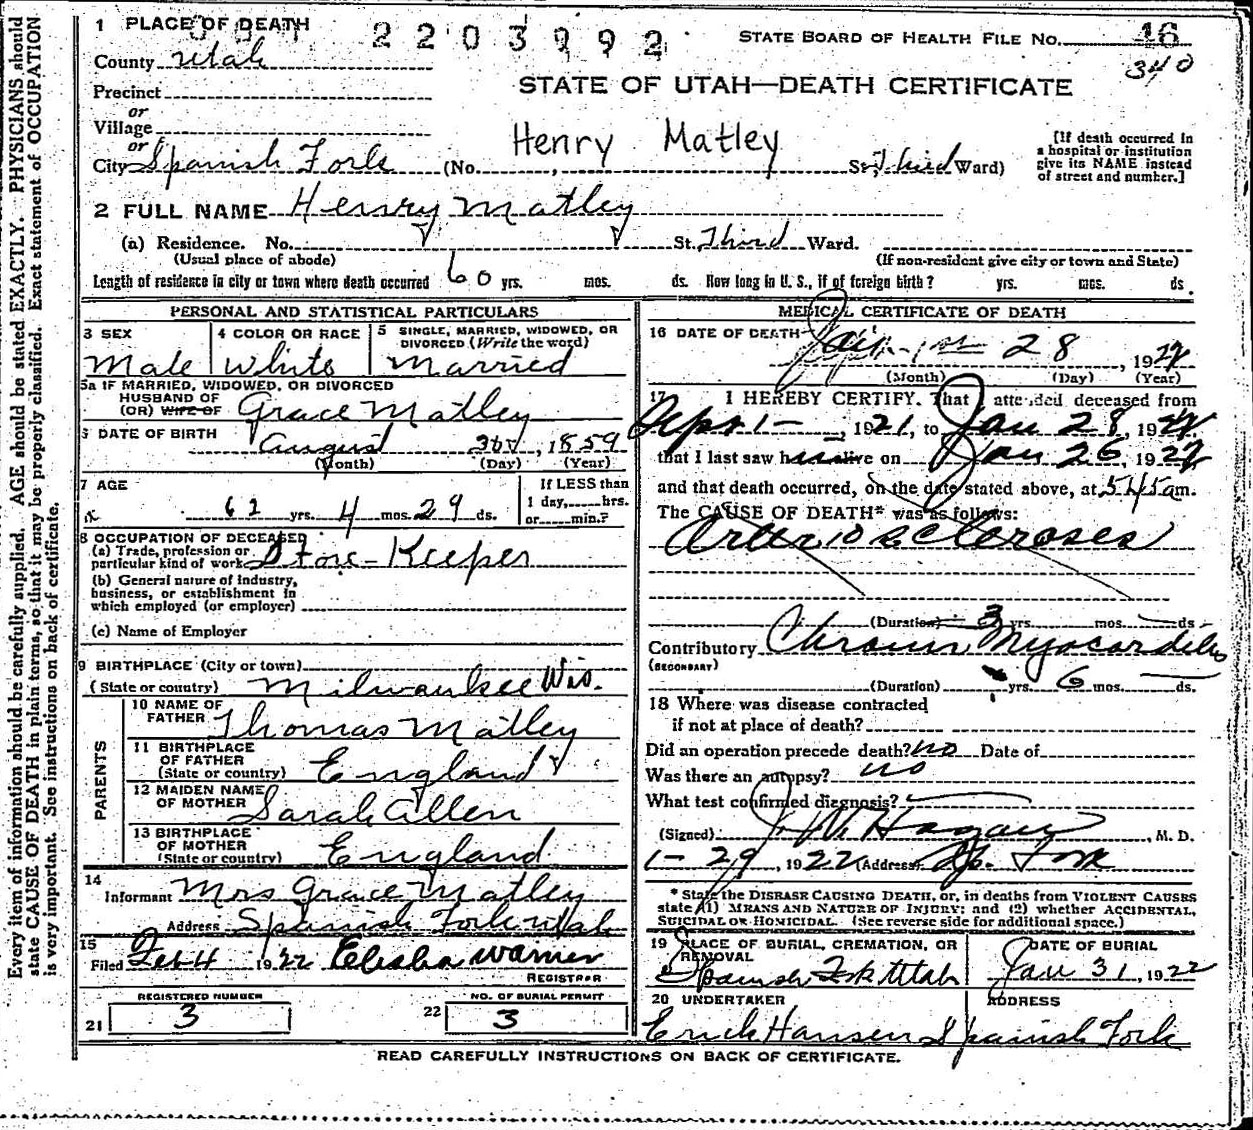 1 PLACE OF DEATH
2203992
STATE BOARD OF HEALTH FILE No. 46
340
County Utah
STATE OF UTAH—DEATH CERTIFICATE
Precinct
or
Village
or
City Spanish Fork (No. , St; Third Ward)
Henry Matley
[If death occurred in
a hospital or institution
give its NAME instead
of street and number.]
2 FULL NAME Henry Matley
(a) Residence. No. St. Third Ward.
(Usual place of abode) (If non-resident give city or town and State)
Length of residence in city or town where death occurred 60 yrs. mos. ds. How long in U. S., if of foreign birth? yrs. mos. ds.
PERSONAL AND STATISTICAL PARTICULARS
3 SEX
Male
4 COLOR OR RACE
White
5 SINGLE, MARRIED, WIDOWED, OR
DIVORCED (Write the word)
Married
5a IF MARRIED, WIDOWED, OR DIVORCED
HUSBAND OF
(OR) WIFE OF Grace Matley
6 DATE OF BIRTH August 30, 1859
(Month) (Day) (Year)
7 AGE
62 yrs. 4 mos. 29 ds.
If LESS than
1 day, hrs.
or min.?
8 OCCUPATION OF DECEASED
(a) Trade, profession or
particular kind of work Store-Keeper
(b) General nature of industry,
business, or establishment in
which employed (or employer)
(c) Name of Employer
9 BIRTHPLACE (City or town)
(State or country) Milwaukee Wis.
PARENTS
10 NAME OF
FATHER Thomas Matley
11 BIRTHPLACE
OF FATHER
(State or country) England
12 MAIDEN NAME
OF MOTHER Sarah Allen
13 BIRTHPLACE
OF MOTHER
(State or country) England
14
Informant Mrs Grace Matley
Address Spanish Fork Utah
15
Filed Feb 4 1922 Elisha Warner
REGISTRAR
REGISTERED NUMBER
21 3
NO. OF BURIAL PERMIT
22 3
MEDICAL CERTIFICATE OF DEATH
16 DATE OF DEATH
Jan 28, 1922
(Month) (Day) (Year)
17 I HEREBY CERTIFY. That I attended deceased from
Apr 1 - , 1921, to Jan 28, 1922
that I last saw h alive on Jan 26, 1922
and that death occurred, on the date stated above, at 545 am.
The CAUSE OF DEATH* was as follows:
Arterio scleroses
(Duration) 3 yrs. mos. ds
Contributory Chronic Myocarditis
(SECONDARY)
(Duration) yrs. 6 mos. ds.
18 Where was disease contracted
if not at place of death?
Did an operation precede death? no Date of
Was there an autopsy? no
What test confirmed diagnosis?
(Signed) Hagan, M. D.
1-29, 1922 (Address) Sp. Fork
* State the DISEASE CAUSING DEATH, or, in deaths from VIOLENT CAUSES
state (1) MEANS AND NATURE OF INJURY; and (2) whether ACCIDENTAL,
SUICIDAL OR HOMICIDAL. (See reverse side for additional space.)
19 PLACE OF BURIAL, CREMATION, OR
REMOVAL
Spanish Fork Utah
DATE OF BURIAL
Jan 31, 1922
20 UNDERTAKER
Erick Hansen
ADDRESS
Spanish Fork
READ CAREFULLY INSTRUCTIONS ON BACK OF CERTIFICATE.
Every item of information should be carefully supplied. AGE should be stated EXACTLY. PHYSICIANS should
state CAUSE OF DEATH in plain terms, so that it may be properly classified. Exact statement of OCCUPATION
is very important. See instructions on back of certificate.